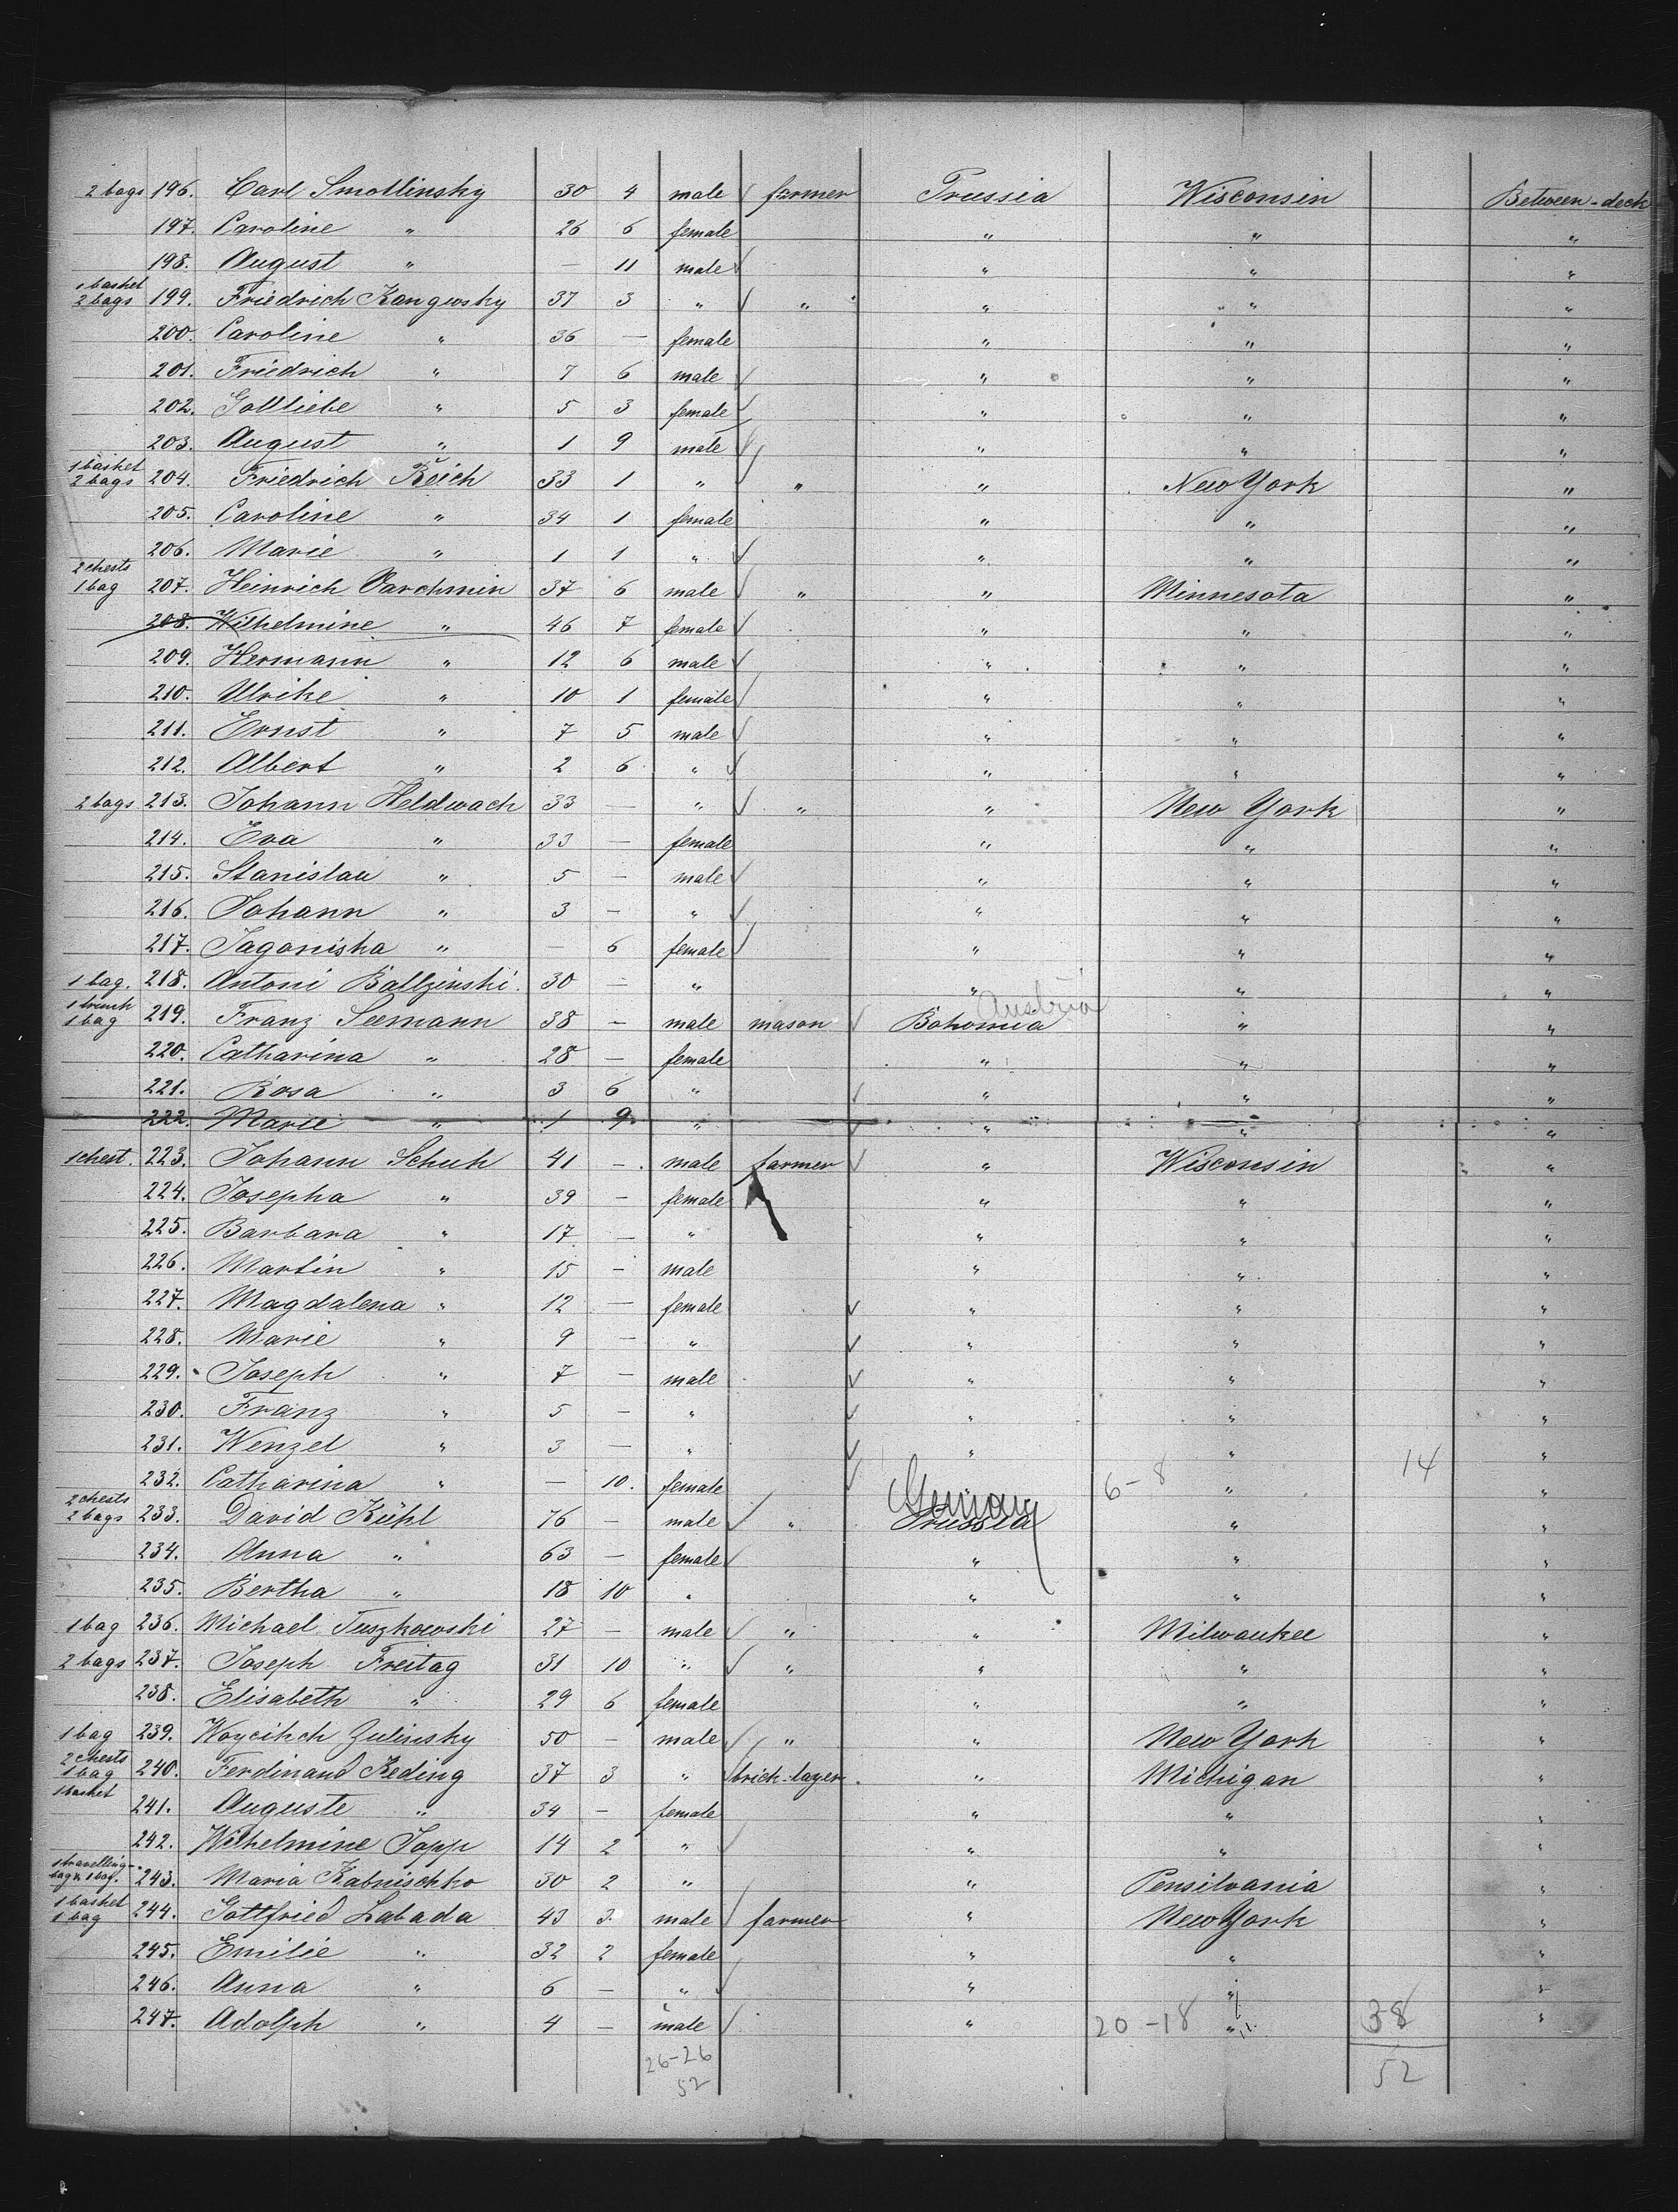 2 bags 196. Carl Smotlinsky 30 4 male farmer Prussia Wisconsin Between-deck
197. Caroline " 26 6 female " " "
198. August " — 11 male " " "
1 basket
2 bags 199. Friedrich Kangwsky 37 3 " " " " "
200. Caroline " 36 — female " " "
201. Friedrich " 7 6 male " " "
202. Gottliebe " 5 3 female " " "
203. August " 1 9 male " " "
1 basket
2 bags 204. Friedrich Reich 33 1 " " " New York "
205. Caroline " 34 1 female " " "
206. Marie " 1 1 " " " "
2 chests
1 bag 207. Heinrich Varchmin 37 6 male " " Minnesota "
208. Wilhelmine " 46 7 female " " "
209. Hermann " 12 6 male " " "
210. Ulrike " 10 1 female " " "
211. Ernst " 7 5 male " " "
212. Albert " 2 6 " " " "
2 bags 213. Johann Heldwach 33 — " " " New York "
214. Eva " 33 — female " " "
215. Stanislau " 5 — male " " "
216. Johann " 3 — " " " "
217. Jagonisha " — 6 female " " "
1 bag. 218. Antoni Ballzinski. 30 — " " " "
Austria
1 trunk
1 bag 219. Franz Seemann 38 — male mason Bohomia " "
220. Catharina " 28 — female " " "
221. Rosa " 3 6 " " " "
222. Marie " 1 9 " " " "
1 chest. 223. Johann Schuh 41 — male farmer " Wisconsin "
224. Josepha " 39 — female " " "
225. Barbara " 17 — " " " "
226. Martin " 15 — male " " "
227. Magdalena " 12 — female " " "
228. Marie " 9 — " " " "
229. Joseph " 7 — male " " "
230. Franz " 5 — " " " "
231. Wenzel " 3 — " " " 14 "
232. Catharina " — 10. female 6-8 " "
Germany
2 chests
2 bags 233. David Kühl 76 — male " Prussia " "
234. Anna " 63 — female " " "
235. Bertha " 18 10 " " " "
1 bag 236. Michael Tuszkowski 27 — male " " Milwaukee "
2 bags 237. Joseph Freitag 31 10 " " " " "
238. Elisabeth " 29 6 female " " "
1 bag 239. Woycihch Zulinsky 50 — male " " New York "
2 chests
1 bag 240. Ferdinand Reding 37 3 " brick-layer " Michigan "
1 basket
241. Auguste " 34 — female " " "
242. Wilhelmine Popp 14 2 " " " "
1 travelling-
bag & 1 bag. 243. Maria Kabnischko 30 2 " " Pensilvania "
1 basket
1 bag 244. Gottfried Labada 43 3 male farmer " New York "
245. Emilie " 32 2 female " " "
246. Anna " 6 — " " " "
247. Adolph " 4 — male " 20-18 " 38 "
26-26
52 52